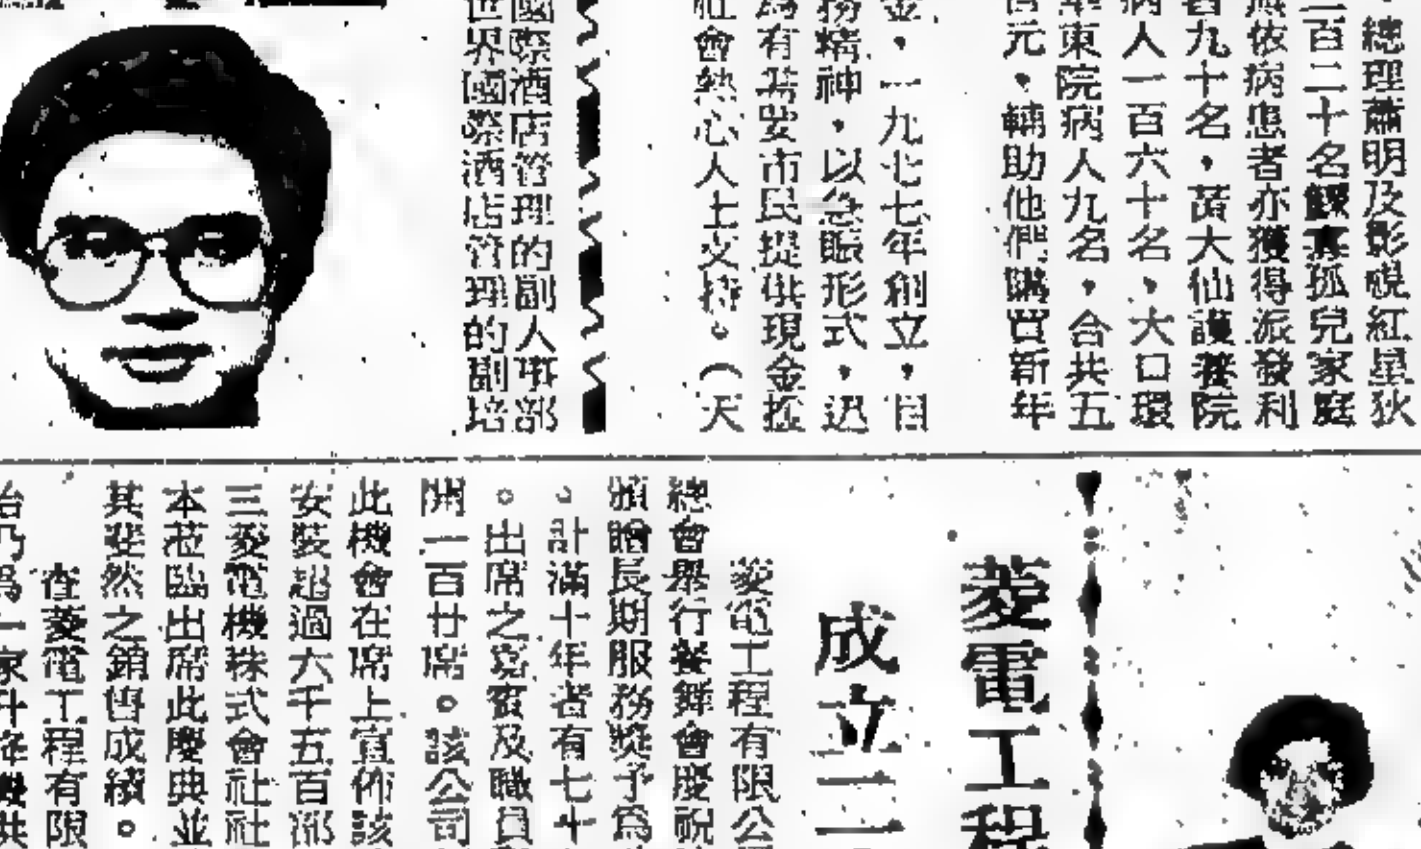 總理蕭明及影視紅星狄
百二十名鰥寡孤兒家庭
依病患者亦獲得派發利
九十名，黃大仙護養院
病人一百六十名，大口環
東院病人九名，合共五
元，輔助他們購買新年
金，一九七七年創立，目
務精神，以急賑形式，迅
為有需要市民提供現金援
社會熱心人士支持。（天
國際酒店管理的副人事部
世界國際酒店管理的副培
菱電工程
成立二
菱電工程有限公
總會舉行餐舞會慶祝
頒贈長期服務獎予為
。計滿十年者有七十
。出席之嘉賓及職員
開一百廿席。該公司
此機會在席上宣佈該
安裝超過六千五百部
三菱電機株式會社社
本蒞臨出席此慶典並
其斐然之銷售成績。
在菱電工程有限
乃為一家升降機供